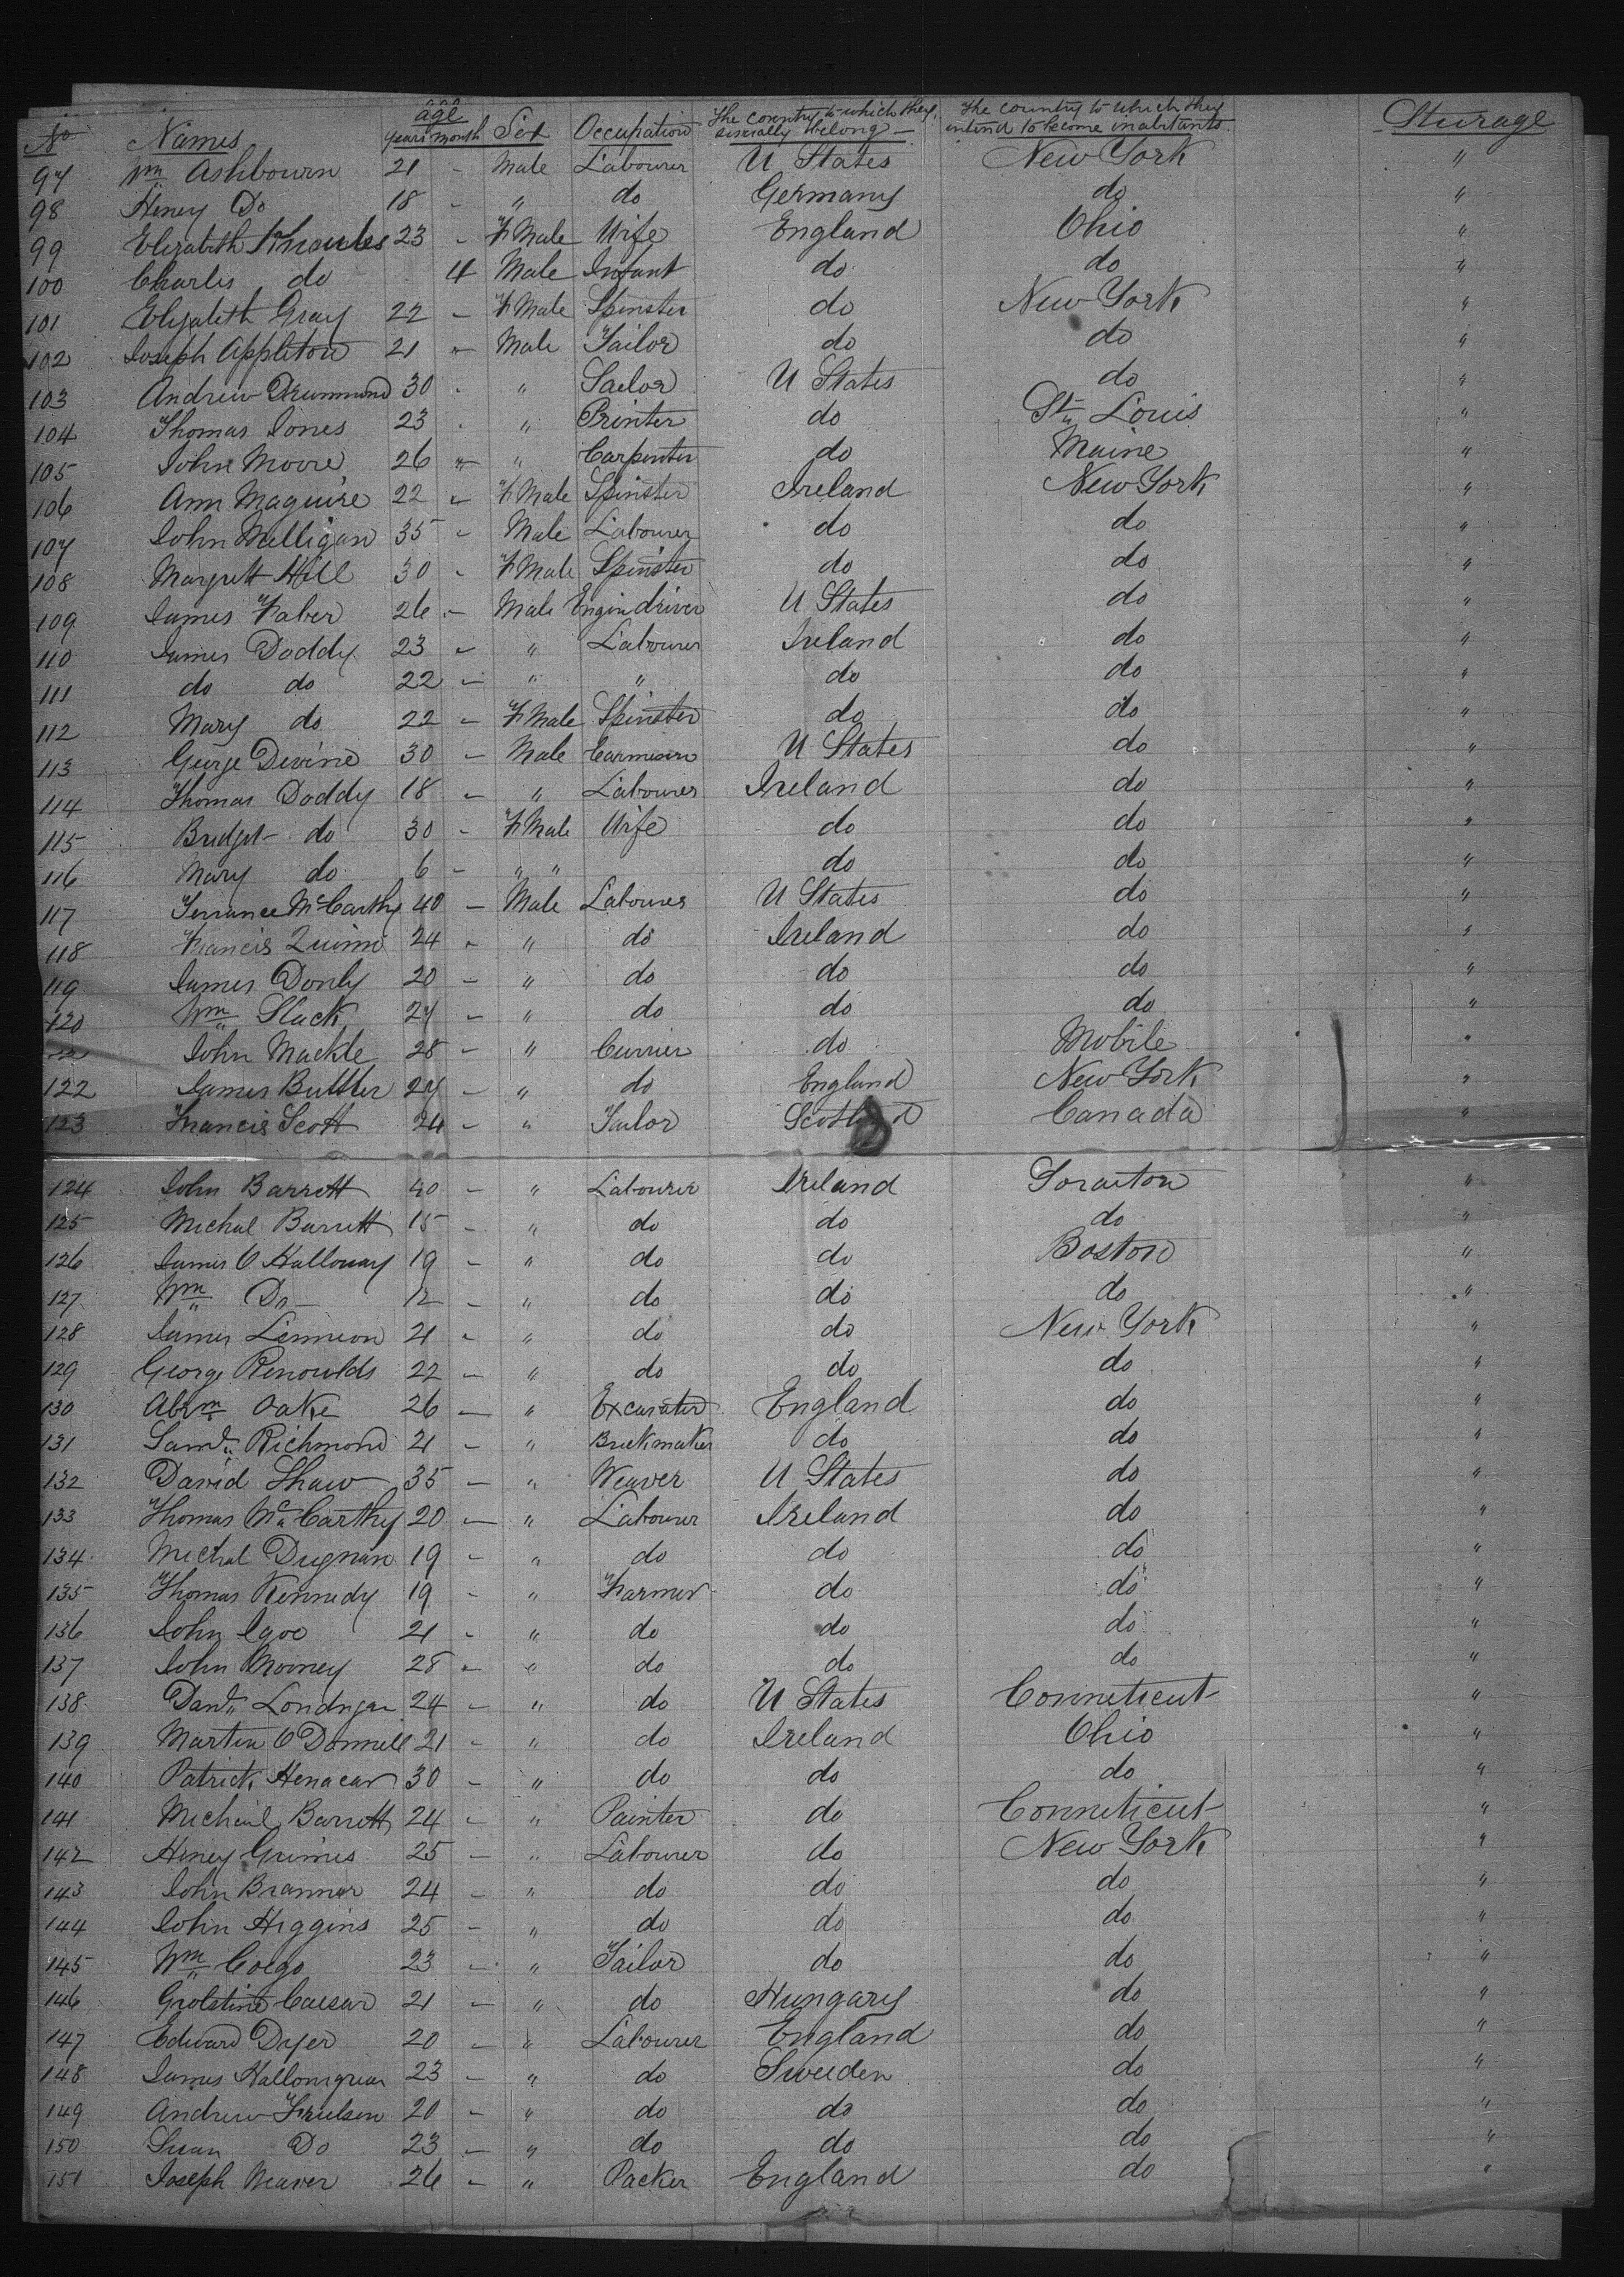 No Names age years month Sex Occupation The country to which they severally belong The country to which they intend to become inhabitants Sturage
97 Wm Ashbourn 21 - Male Labourer U States New York "
98 Heney Do 18 - " do Germany do "
99 Elizabeth Knowles 23 - F Male Wife England Ohio "
100 Charles do 4 Male Infant do do "
101 Elizabeth Gray 22 - F Male Spinster do New York "
102 Joseph Appleton 21 - Male Tailor do do "
103 Andrew Drummond 30 - " Sailor U States do "
104 Thomas Jones 23 - " Printer do St Louis "
105 John Moore 26 - " Carpenter do Maine "
106 Ann Maguire 22 - F Male Spinster Ireland New York "
107 John Milligan 35 - Male Labourer do do "
108 Margrett Hill 30 - F Male Spinster do do "
109 James Faber 26 - Male Engin driver U States do "
110 James Doddy 23 - " Labourer Ireland do "
111 do do 22 - " " do do "
112 Mary do 22 - F Male Spinster do do "
113 George Devine 30 - Male U States do "
114 Thomas Doddy 18 - " Labourer Ireland do "
115 Bridget do 30 - F Male Wife do do "
116 Mary do 6 - " " do do "
117 Terrance McCarthy 40 - Male Labourer U States do "
118 Francis Quinn 24 - " do Ireland do "
119 James Donly 20 - " do do do "
120 Wm Slack 27 - " do do do "
John Mackle 28 - " Currier do Mobile "
122 James Buttler 27 - " do England New York "
123 Francis Scott 24 - " Tailor Scotland Canada "
124 John Barrett 40 - " Labourer Ireland "
125 Michal Barrett 15 - " do do do "
126 James O Halloway 19 - " do do Boston "
127 Wm Do 12 - " do do do "
128 James Lennion 21 - " do do New York "
129 George Renoulds 22 - " do do do "
130 Abrm Oake 26 - " Excavater England do "
131 Saml Richmond 21 - " Brickmaker do do "
132 David Shaw 35 - " Weaver U States do "
133 Thomas McCarthy 20 - " Labourer Ireland do "
134 Michal Dugnan 19 - " do do do "
135 Thomas Kennedy 19 - " Farmer do do "
136 John Igoe 21 - " do do do "
137 John Mooney 28 - " do do do "
138 Danl 24 - " do U States Conneticut "
139 Martin O Donnell 21 - " do Ireland Ohio "
140 Patrick Henacan 30 - " do do do "
141 Micheal Barrett 24 - " Painter do Conneticut "
142 Heney Grimes 25 - " Labourer do New York "
143 John Brannar 24 - " do do do "
144 John Higgins 25 - " do do do "
145 Wm 23 - " Tailor do do "
146 Grolstine Caesar 21 - " do Hungary do "
147 Edward Dyer 20 - " Labourer England do "
148 James 23 - " do Sweeden do "
149 Andrew 20 - " do do do "
150 Do 23 - " do do do "
151 Joseph Weaver 26 - " Packer England do "